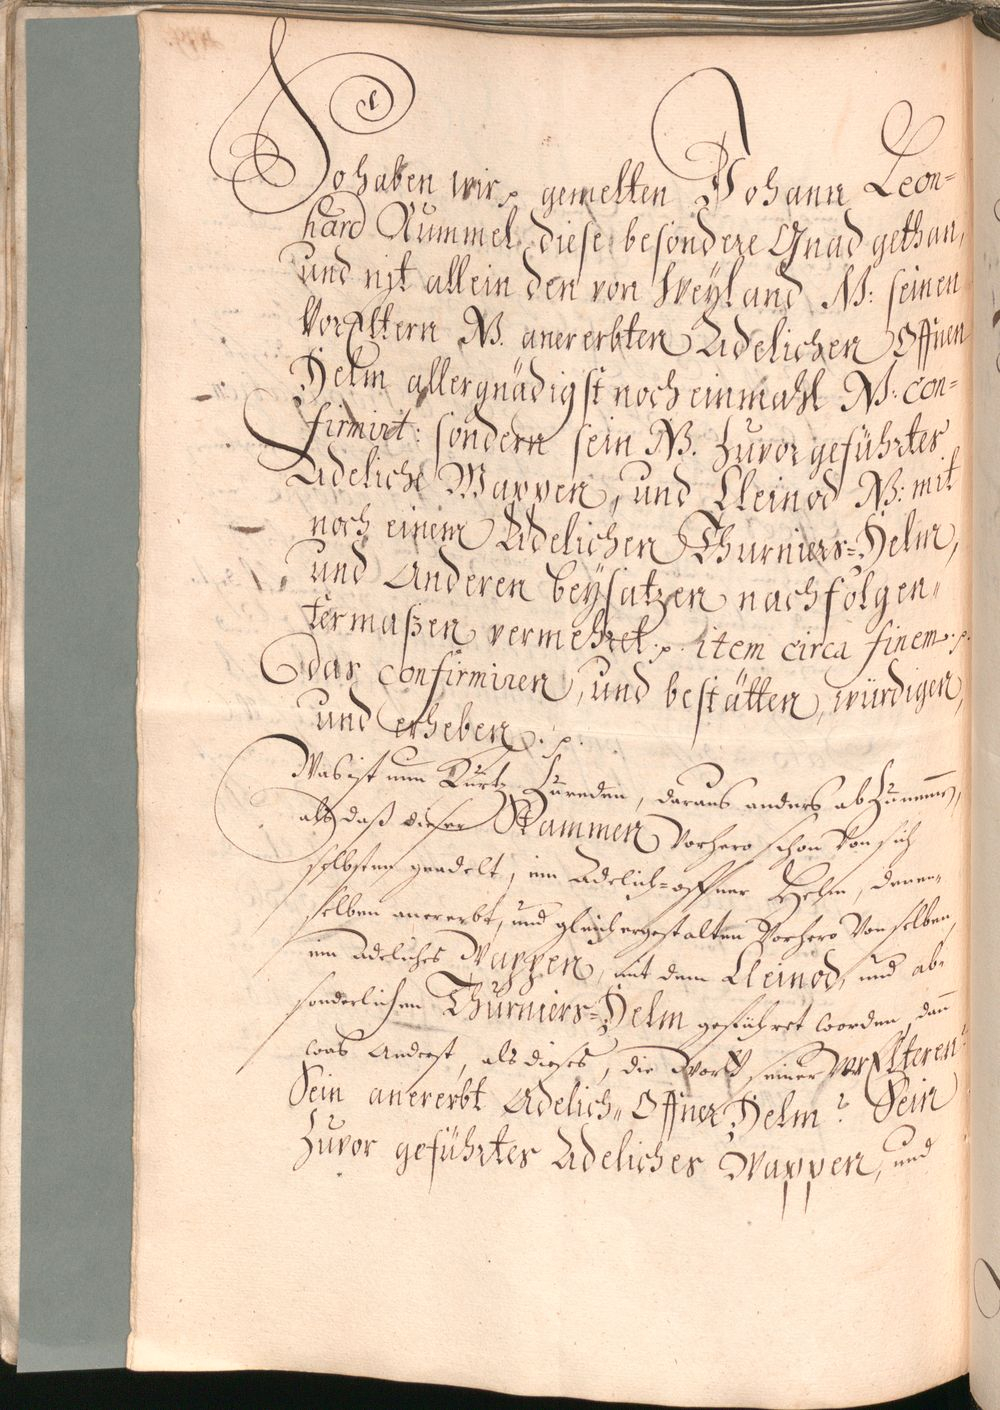 So haben wir p. gemelten Johann Leon=
hard Rummel diese besondere Gnad gethan,
und nit allein den von Weyland N: seinen
VorEltern N. anererbten Adelichen Offnen
Helm allergnädigst noch einmahl N: con=
firmirt: sondern sein N. Zuvor geführtes
Adeliche Wappen, und Cleinod N: mit
noch einem Adelichen Thurniers=Helm,
und Anderen beysatzen nachfolgen=
termaßen vermehret p. item circa finem p.
das confirmiren, und bestätten, würdigen,
und erheben p.
Was ist nun Kurtz Zureden, daraus anders abZunemmen,
als daß dieser Stammen vorhero schon von sich
selbsten geadelt, ein Adelich=offner Helm, denen=
selben anererbt, und gleichergestalten vorhero von selben,
ein adeliches Wappen, mit dem Cleinod, und ab=
sonderlichen Thurniers=Helm geführet worden, dan
was Anderst, als dieses, die Wort seiner VorElteren?
Sein anererbt Adelich= Offner Helm? Sein
Zuvor geführtes Adeliches Wappen, und